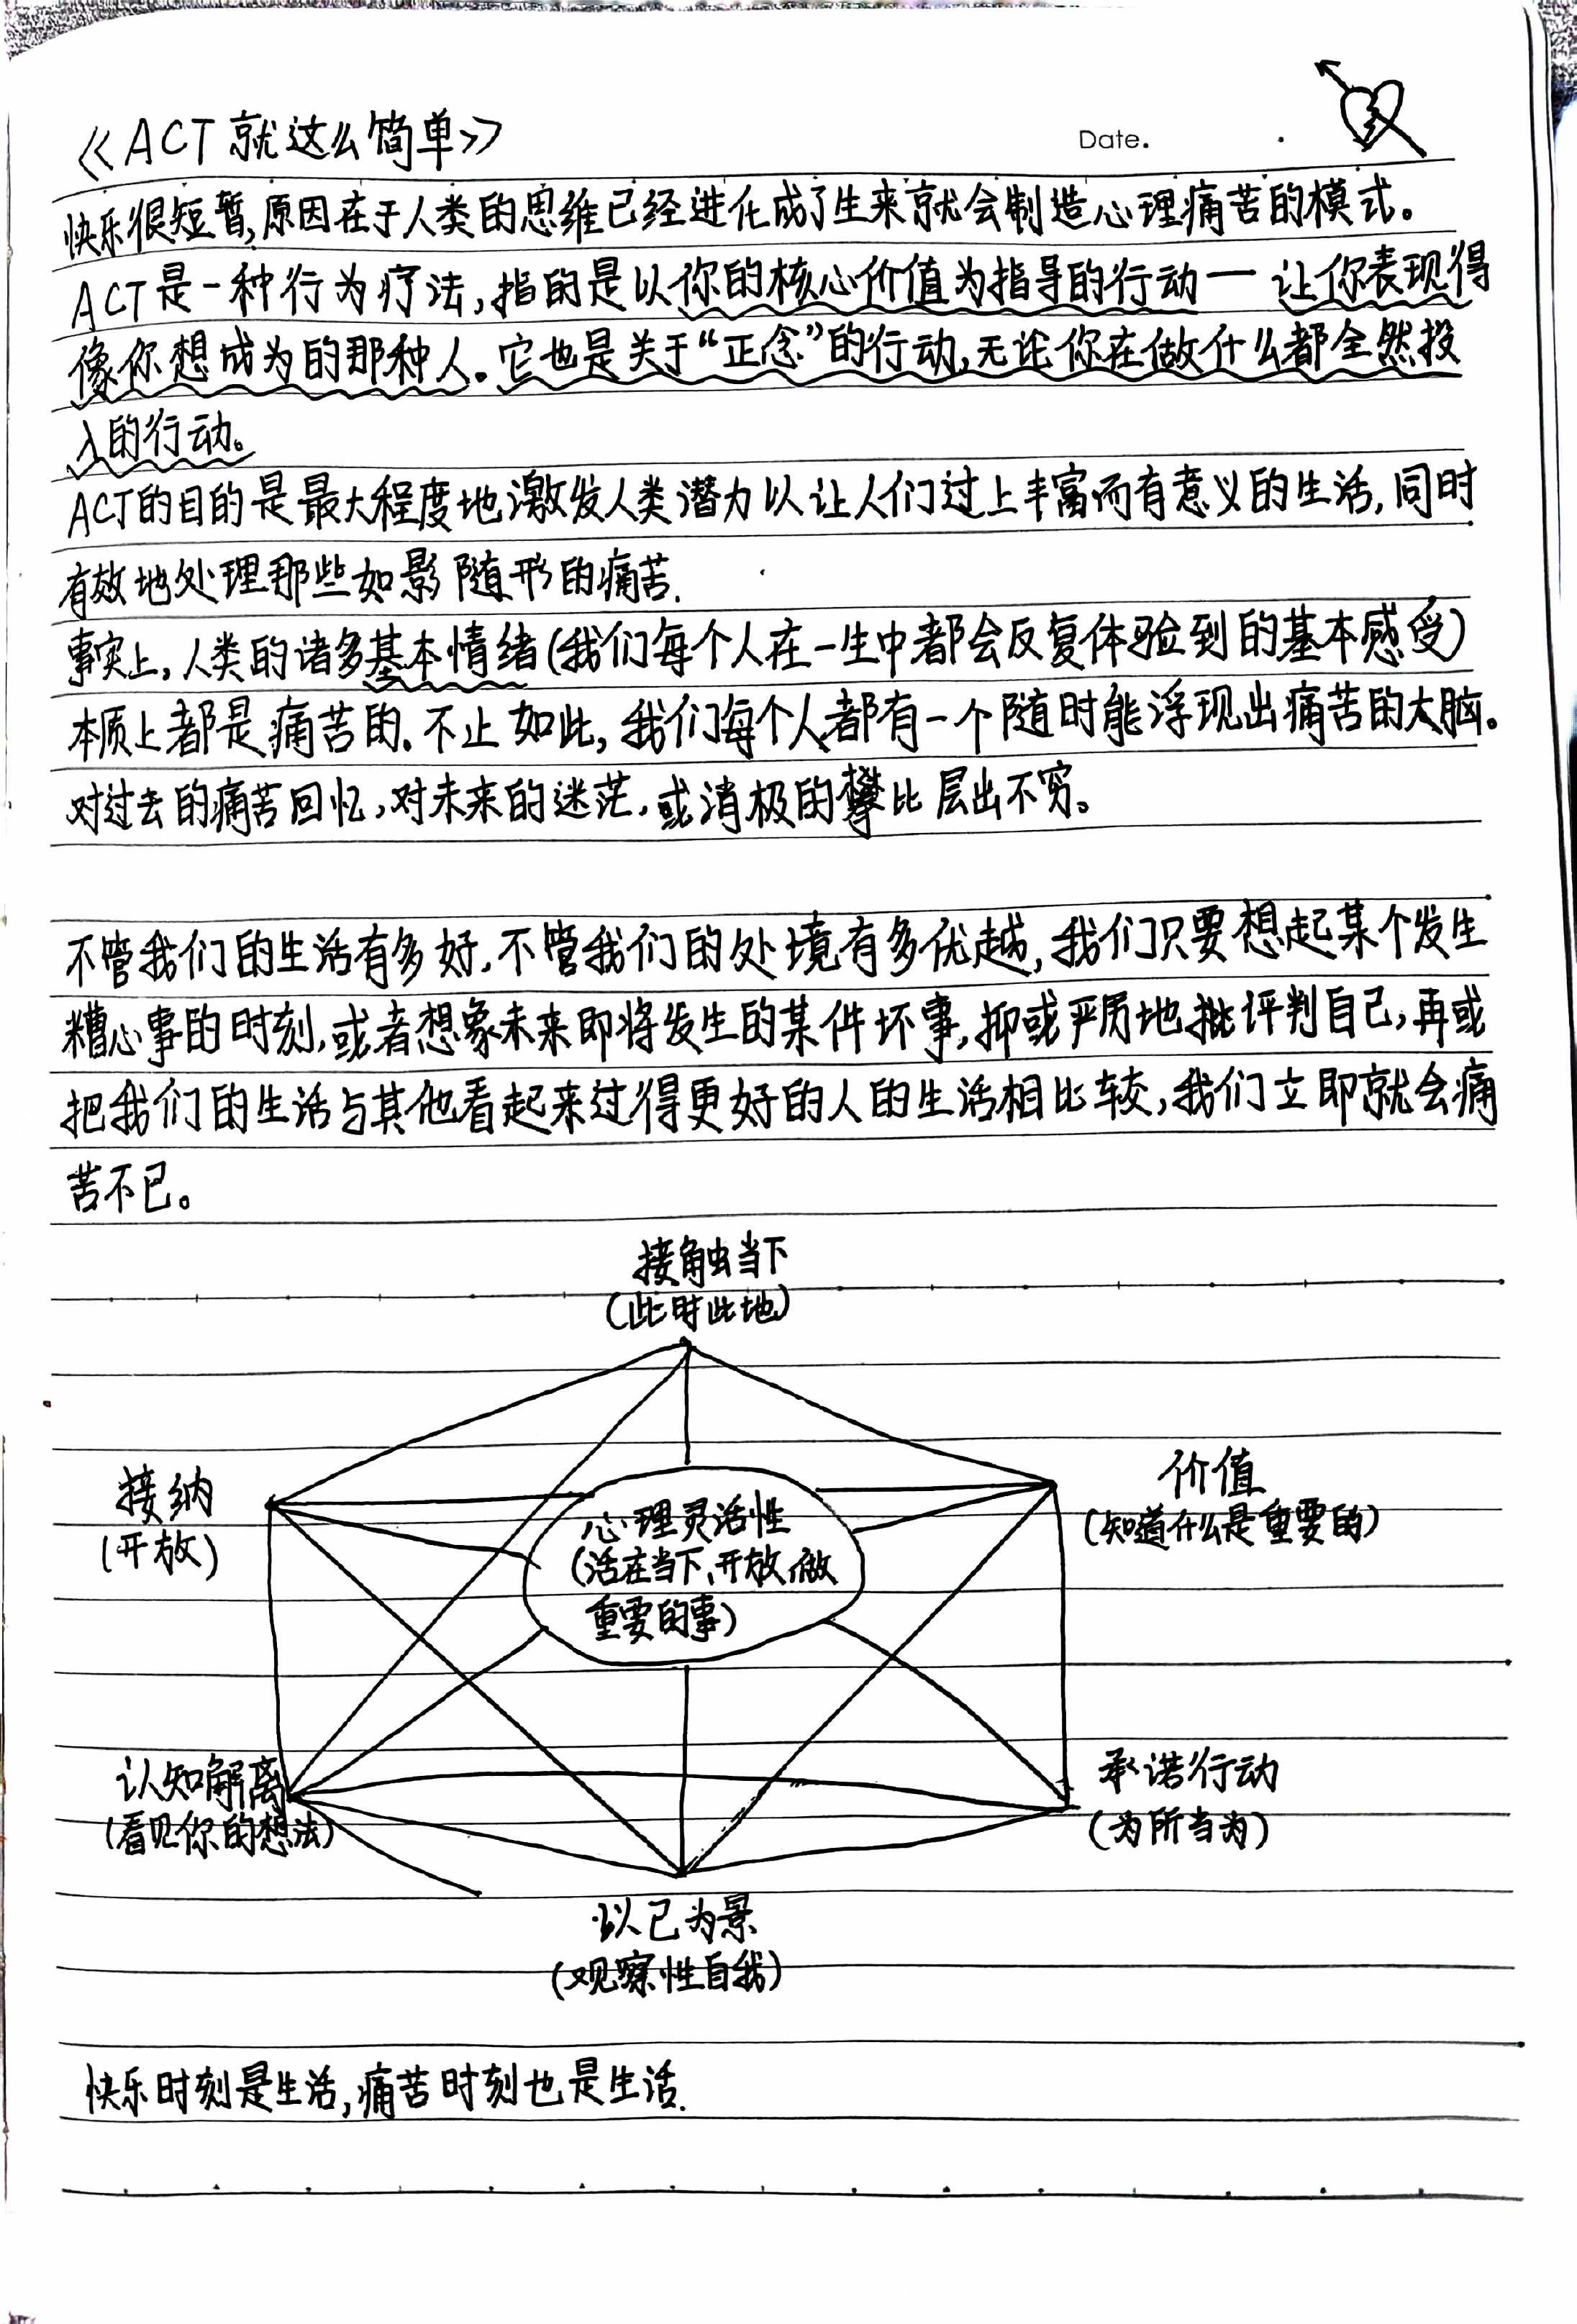 《ACT就这么简单》
Date.
快乐很短暂,原因在于人类的思维已经进化成了生来就会制造心理痛苦的模式。
ACT是一种行为疗法,指的是以你的核心价值为指导的行动—让你表现得
像你想成为的那种人。它也是关于“正念”的行动,无论你在做什么都全然投
入的行动。
ACT的目的是最大程度地激发人类潜力以让人们过上丰富而有意义的生活,同时
有效地处理那些如影随形的痛苦.
事实上,人类的诸多基本情绪(我们每个人在一生中都会反复体验到的基本感受)
本质上都是痛苦的。不止如此,我们每个人都有一个随时能浮现出痛苦的大脑。
对过去的痛苦回忆,对未来的迷茫,或消极的攀比层出不穷。
不管我们的生活有多好,不管我们的处境有多优越,我们只要想起某个发生
糟心事的时刻,或者想象未来即将发生的某件坏事,抑或严厉地批评判自己,再或
把我们的生活与其他看起来过得更好的人的生活相比较,我们立即就会痛
苦不已。
接触当下
(此时此地)
接纳
(开放)
价值
(知道什么是重要的)
心理灵活性
(活在当下、开放、做
重要的事)
认知解离
(看见你的想法)
承诺行动
(为所当为)
以己为景
(观察性自我)
快乐时刻是生活,痛苦时刻也是生活.